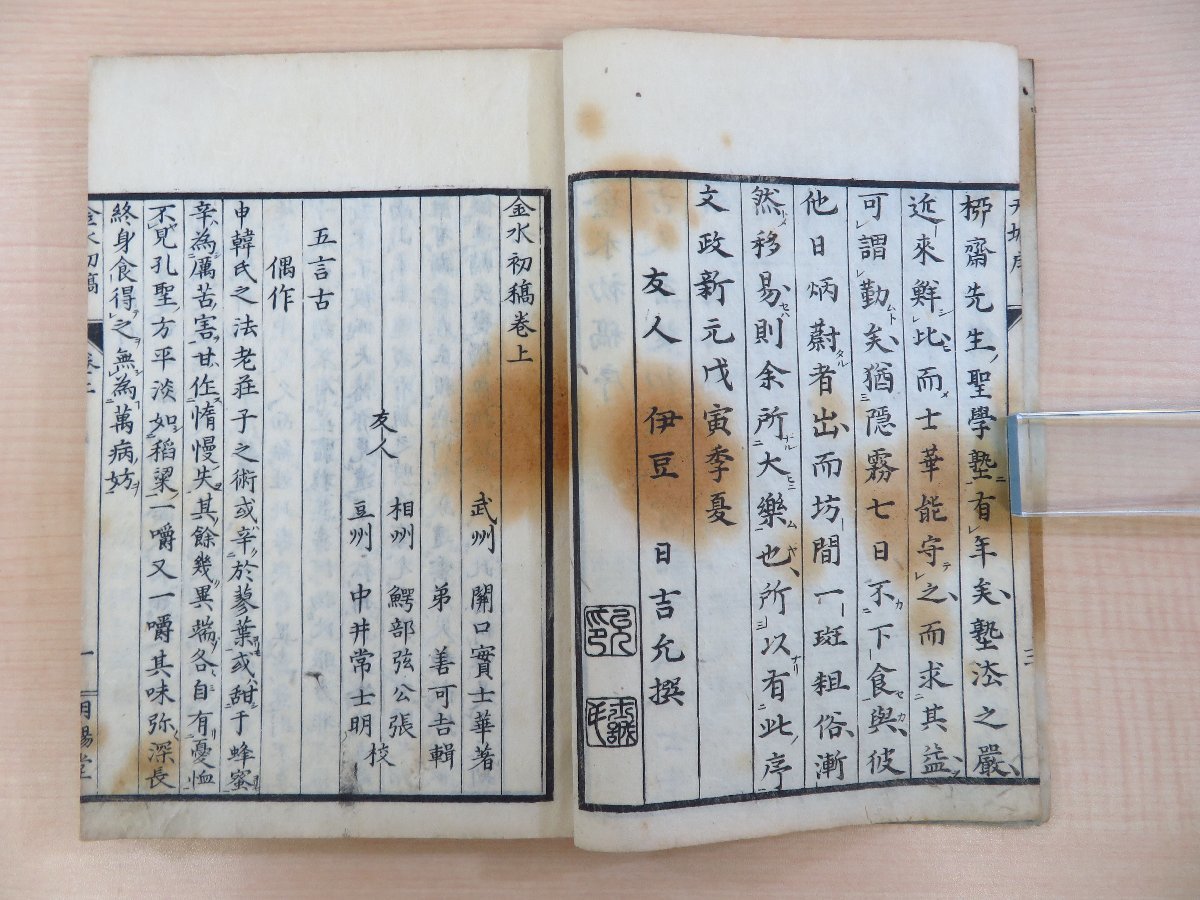 栁齋先生聖學塾有年矣塾法之嚴
近來鮮比而士華能守之而求其益
可謂勤矣猶隱霧七日不下食與彼
他日炳蔚者出而坊間一斑粗俗漸
然移易則余所大樂也所以有此序
文政新元戊寅季夏
友人 伊豆 日吉允撰
金水初稿卷上
武州 關口實士華著
弟 善可吉輯
友人 相州 鰐部弦公張
豆州 中井常士明 校
五言古
偶作
申韓氏之法老莊子之術或辛於蓼葉或甜于蜂蜜
辛為厲苦害甘作惰慢失其餘幾異端各自有憂恤
不見孔聖方平淡如稻梁一嚼又一嚼其味弥深長
終身食得之無為萬病妨
金水初稿 卷上 一